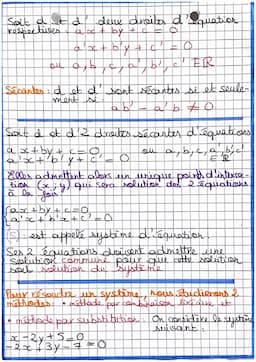 Soit d et d' deux droites d'équation
respectives : ax + by + c = 0
a'x + b'y + c' = 0
où a, b, c, a', b', c' ∈ ℝ
Sécantes : d et d' sont sécantes si et seule-
ment si :
ab' - a'b ≠ 0
Soit d et d' 2 droites sécantes d'équations
ax + by + c = 0 où a, b, c, a', b', c'
a'x + b'y + c' = 0 ∈ ℝ
Elles admettront alors un unique point d'intersec-
tion (x ; y) qui sera solution des 2 équations
à la fois
ax + by + c = 0
a'x + b'y + c' = 0
est appelé système d'équation.
Ses 2 équations doivent admettre une
solution commune pour que cette solution
soit solution du système
Pour résoudre un système, nous étudierons 2
méthodes : • méthode par combinaison linéaire et
• méthode par substitution. On considère le système
suivant :
x - 2y + 5 = 0
-2x + 3y - 7 = 0